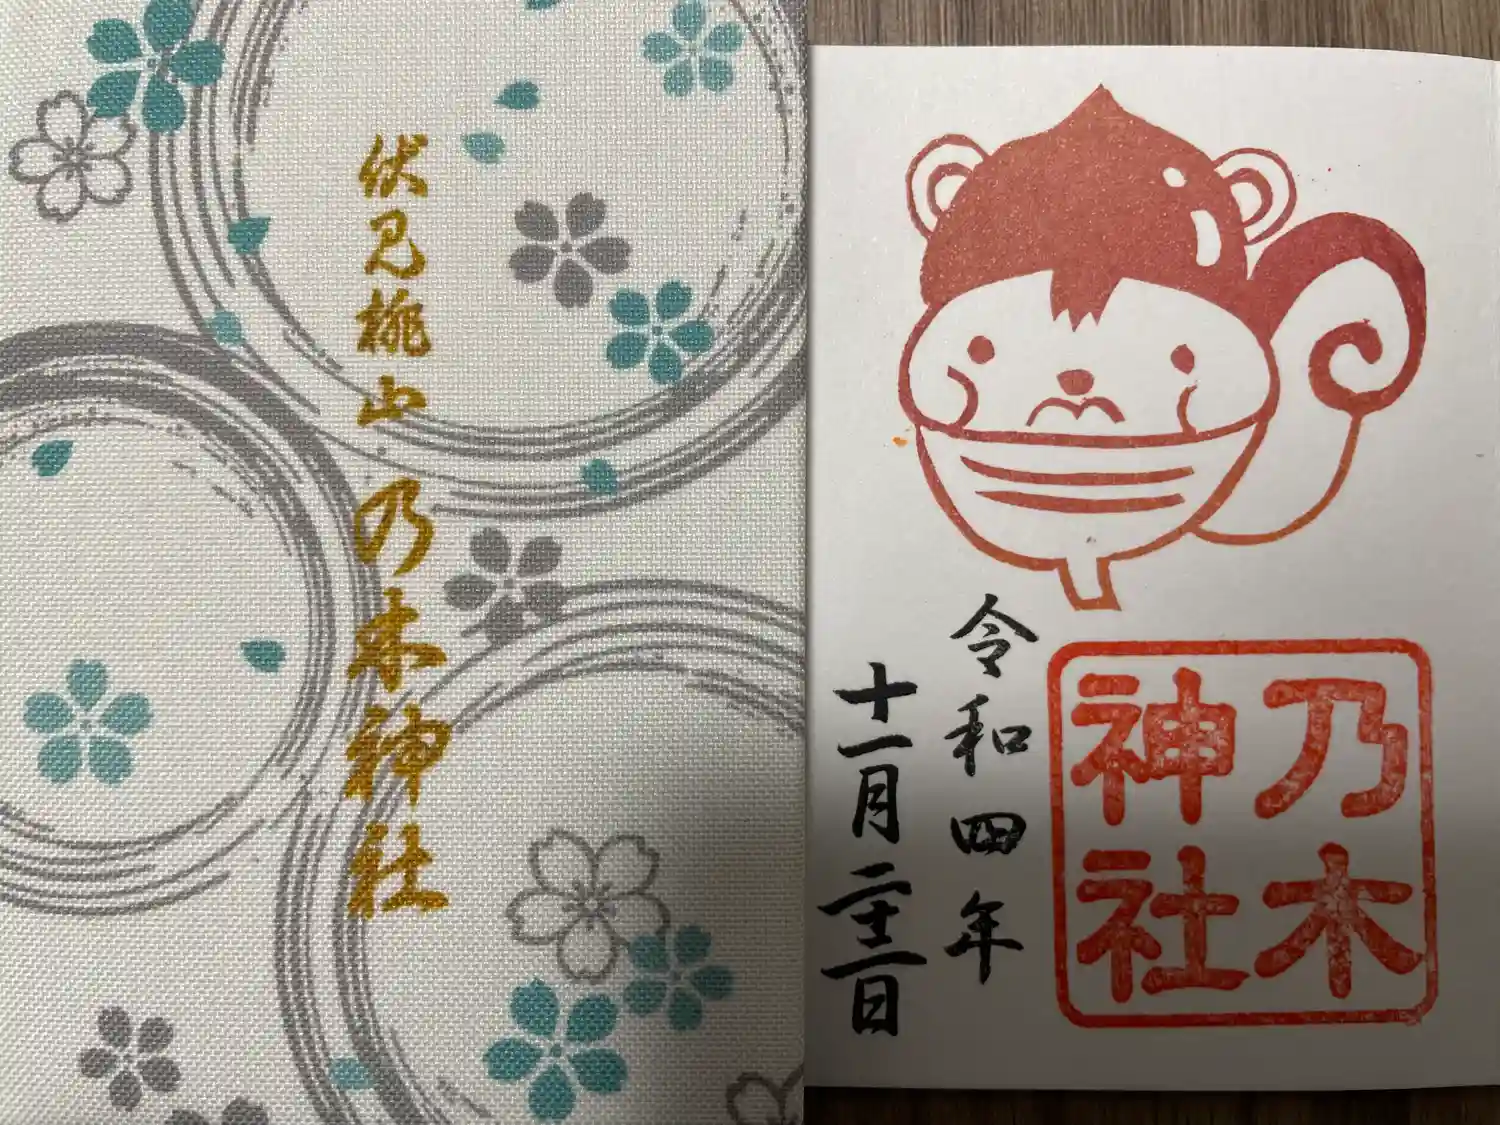 伏見桃山
乃木神社
乃木
神社
令和四年
十一月二十三日